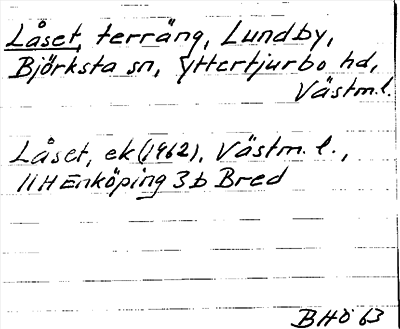 Låset, terräng, Lundby,
Björksta sn, Yttertjurbo hd,
Västm.l.
Låset, ek (1962), Västm. l.,
11H Enköping 3b Bred
BHÖ 63